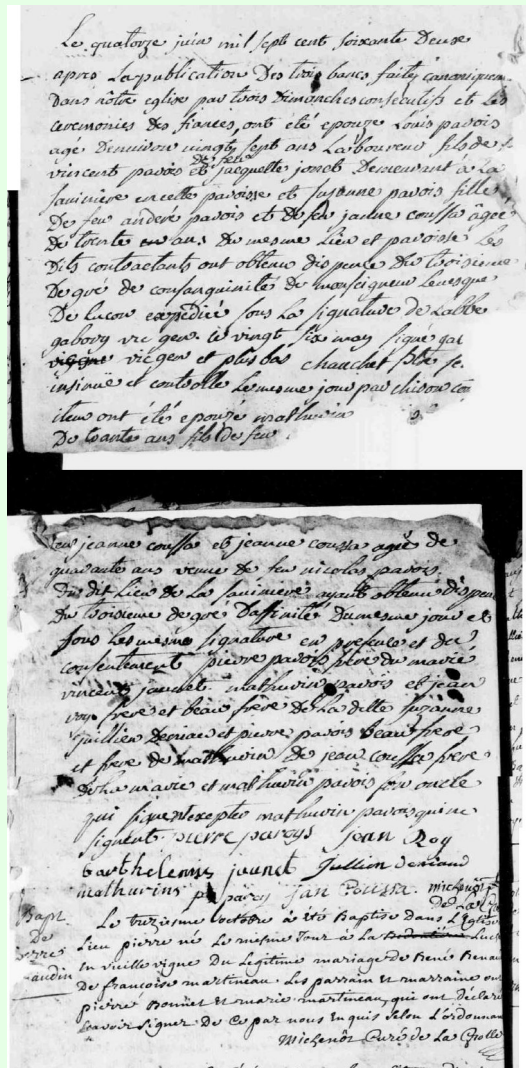 Le quatorze juin mil sept cent soixante Deux
apres La publication Des trois bancs faite canoniquem.
Dans nôtre eglise par trois Dimanches consecutifs et Les
ceremonies des fiances, ont été epouze Louis pavois
agé D'environ vingt sept ans Laboureur fils de f.
vincent pavois et de feue jacquette jonet Demeurant à La
saviniere en cette paroisse et suzanne pavois fille
De feu andré pavois et De feu jeanne coussa agée
de trente ans du mesme Lieu et paroisse Les
Dits contractants ont obtenu dispence du troisieme
De gré de consanguinité De monseigneur Levesque
De Lucon expediée sous La signature de Labbé
gabory vic gen. le vingt six may signé gab
vic gen et plus bas chauchet pbr se.
insinué et controllé Le mesme jour par chison con
item ont été epouzé mathurin
De trante ans fils de feu
feu jeanne coussa et jeanne coussa agée de
quarante ans veuve de feu nicolas pavois
Du dit Lieu de La saviniere ayant obtenu dispen
Du troisieme de gré Daffinité Du mesme jour et
sous Les mesme signature en presence et du
consentement pierre pavois frere du marié
vincent jaunet mathurin pavois et jean
roy frere et beau frere De La ditte suzanne
jullien Deniau et pierre pavois beau frere
et frere de mathurin De jean coussa frere
De la mariée et mathurin pavois son oncle
qui signent excepté mathurin pavois qui ne
signent pierre paroys jean Roy
barthelemis jaunet Jullien deniaud
mathurins paroy jan Coussa. michenot p
de La G
Bapt
De
pierre
Le treziesme octobre à été Baptisé dans L'Eglise
Lieu pierre né Le mesme Jour à La
En vieille vigne Du Legitime mariage de René Renau
De francoise martineau Les parrain et marraine on
pierre Bonnet et marie martineau, qui ont déclaré
scavoir signer De Ce par nous Enquis selon L'ordonnan
Michenot Curé de La Grolle